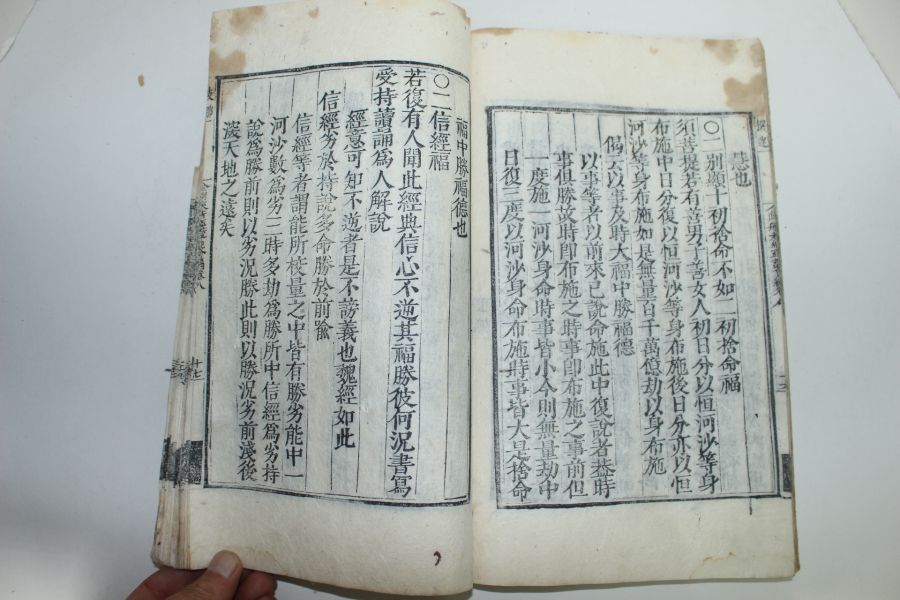 慧也
〇二別顯十初捨命不如二初捨命福
須菩提若有善男子善女人初日分以恒河沙等身
布施中日分復以恒河沙等身布施後日分亦以恒
河沙等身布施如是無量百千萬億劫以身布施
偈云以事及時大福中勝福德
以事等者以前來已說命施此中復說者葢時
事俱勝故時即布施之時事即布施之事前但
一度施一河沙身命時事皆小今則無量劫中
日復三度以河沙身命布施時事皆大是捨命
福中勝福德也
〇二信經福
若復有人聞此經典信心不逆其福勝彼何況書寫
受持讀誦爲人解說
經意可知不逆者是不謗義也魏經如此
信經劣於持說多命勝於前隃
信經等者謂能所校量之中皆有勝劣能中一
河沙數爲劣三時多功爲勝所中信經爲劣持
說爲勝前則以劣況勝此則以勝況劣前淺後
深天地之遠矣
十七